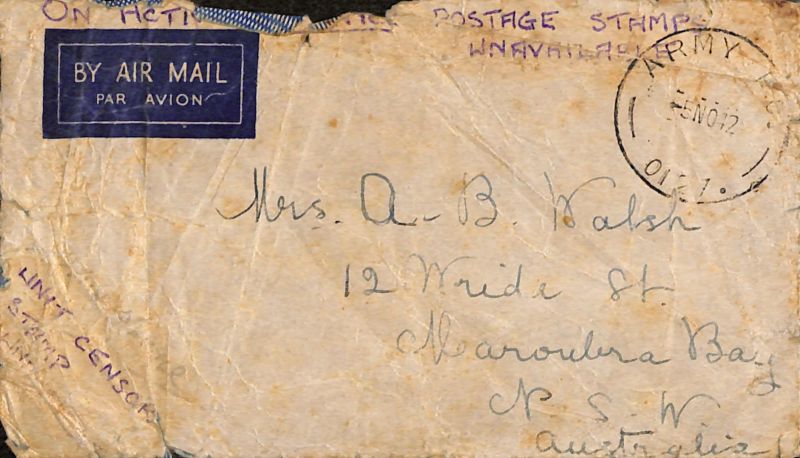 ON ACTI POSTAGE STAMPS
UNAVAILABLE
BY AIR MAIL
PAR AVION
ARMY P.O.
5NO42
Mrs. A. B. Walsh
12 Wride St.
Maroubra Bay
N. S. W.
Australia
UNIT CENSOR
STAMP